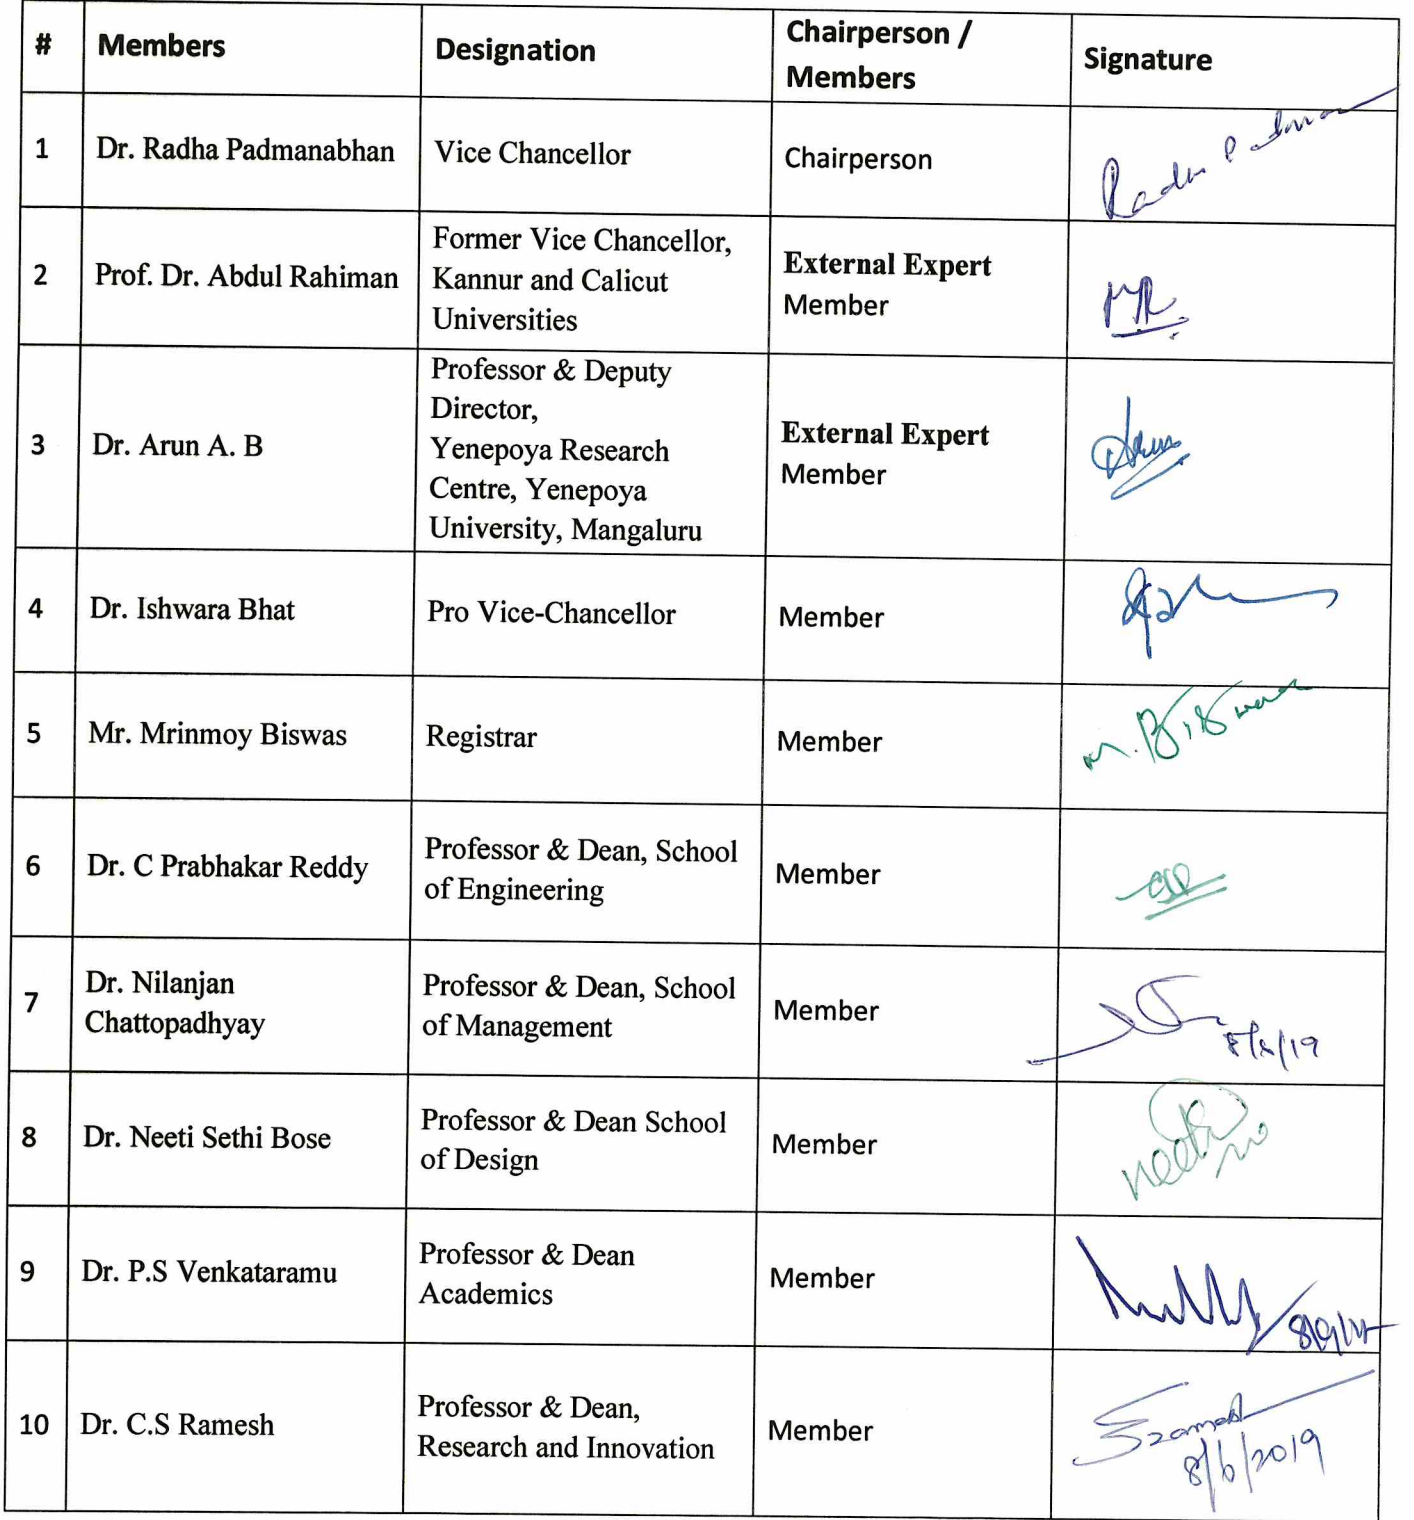 # Members Designation Chairperson / Members Signature
1 Dr. Radha Padmanabhan Vice Chancellor Chairperson
2 Prof. Dr. Abdul Rahiman Former Vice Chancellor,
Kannur and Calicut
Universities
External Expert
Member
3 Dr. Arun A. B Professor & Deputy
Director,
Yenepoya Research
Centre, Yenepoya
University, Mangaluru
External Expert
Member
4 Dr. Ishwara Bhat Pro Vice-Chancellor Member
5 Mr. Mrinmoy Biswas Registrar Member M. Biswas
6 Dr. C Prabhakar Reddy Professor & Dean, School
of Engineering
Member
7 Dr. Nilanjan
Chattopadhyay
Professor & Dean, School
of Management
Member
8 Dr. Neeti Sethi Bose Professor & Dean School
of Design
Member
Neeti
9 Dr. P.S Venkataramu Professor & Dean
Academics
Member
10 Dr. C.S Ramesh Professor & Dean,
Research and Innovation
Member
8/6/2019